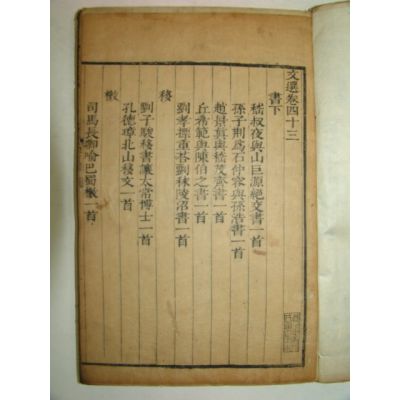 文選卷四十三
書下
嵇叔夜與山巨源絶交書一首
孫子荆爲石仲容與孫浩書一首
趙景眞與嵇茂齊書一首
丘希範與陳伯之書一首
劉孝標重荅劉秣陵沼書一首
移
劉子駿移書讓太常博士一首
孔德璋北山移文一首
檄
司馬長卿喻巴蜀檄一首